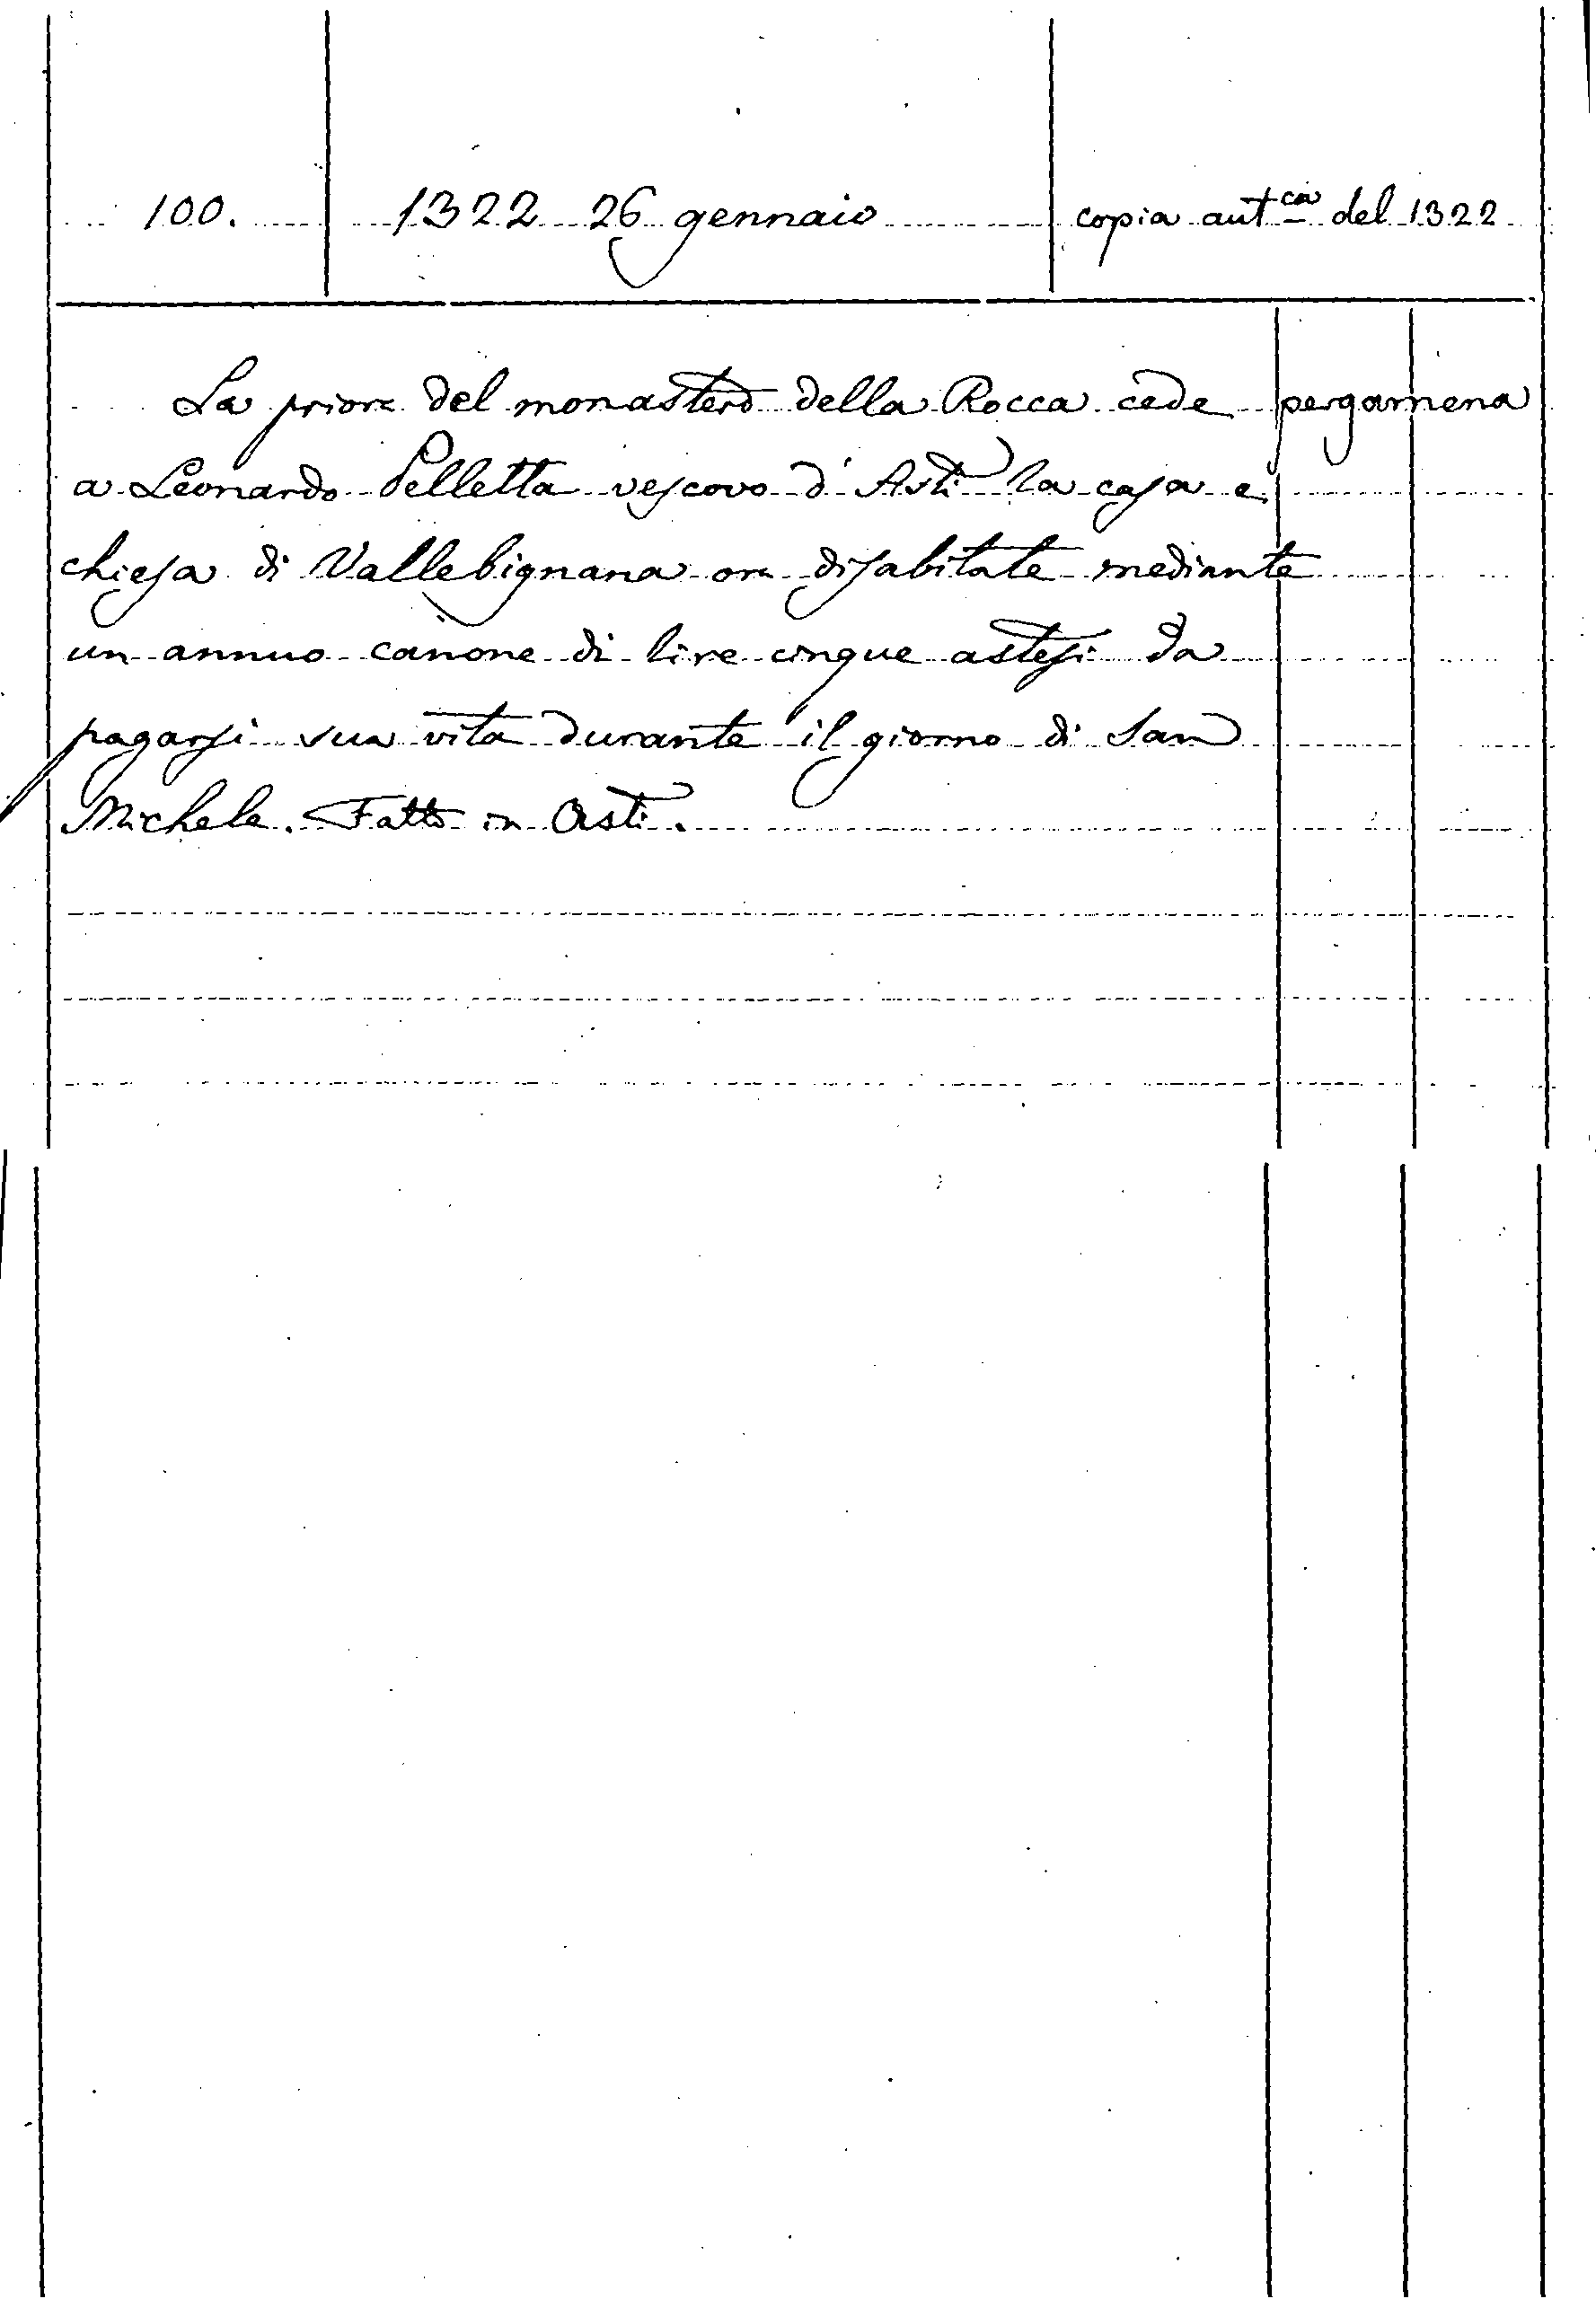 100. 1322 26 gennaio copia aut.ca del 1322
La priora del monastero della Rocca cede pergamena
a Leonardo Pelletta vescovo d'Asti la casa e
chiesa di Vallebignana ora disabitate mediante
un annuo canone di lire cinque astesi da
pagarsi sua vita durante il giorno di San
Michele. Fatto in Asti.